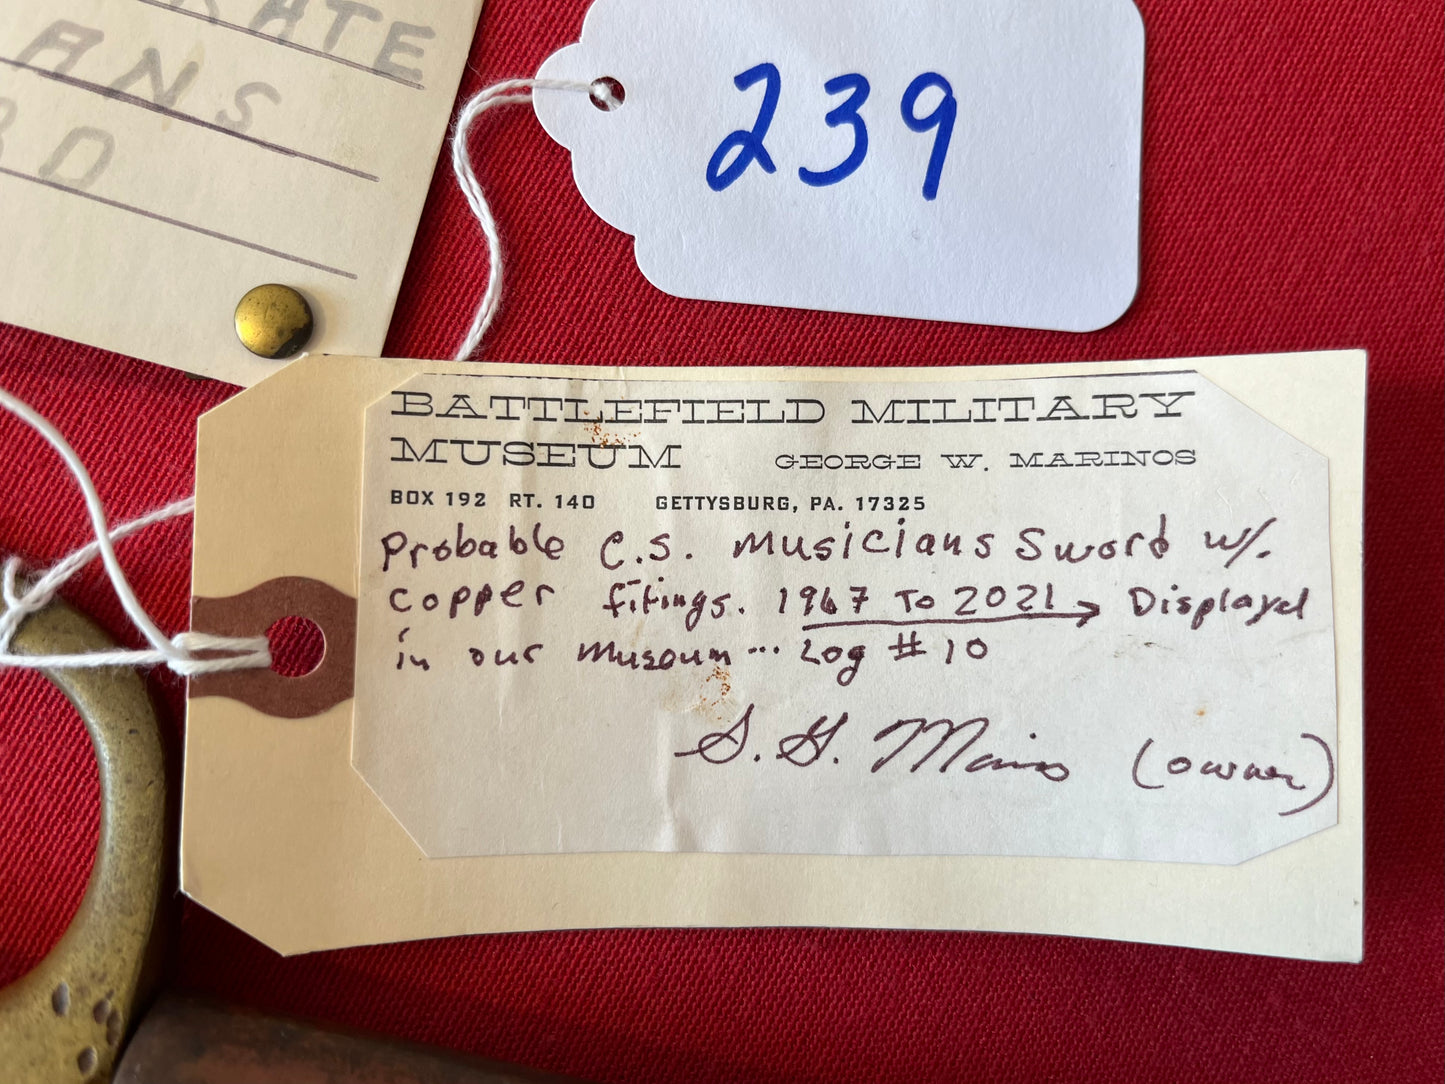 RATE
ANS
239
BATTLEFIELD MILITARY
MUSEUM GEORGE W. MARINOS
BOX 192 RT. 140 GETTYSBURG, PA. 17325
Probable C.S. Musicians Sword w/.
Copper fitings. 1967 TO 2021 → Displayed
in our Museum ... Log # 10
(owner)